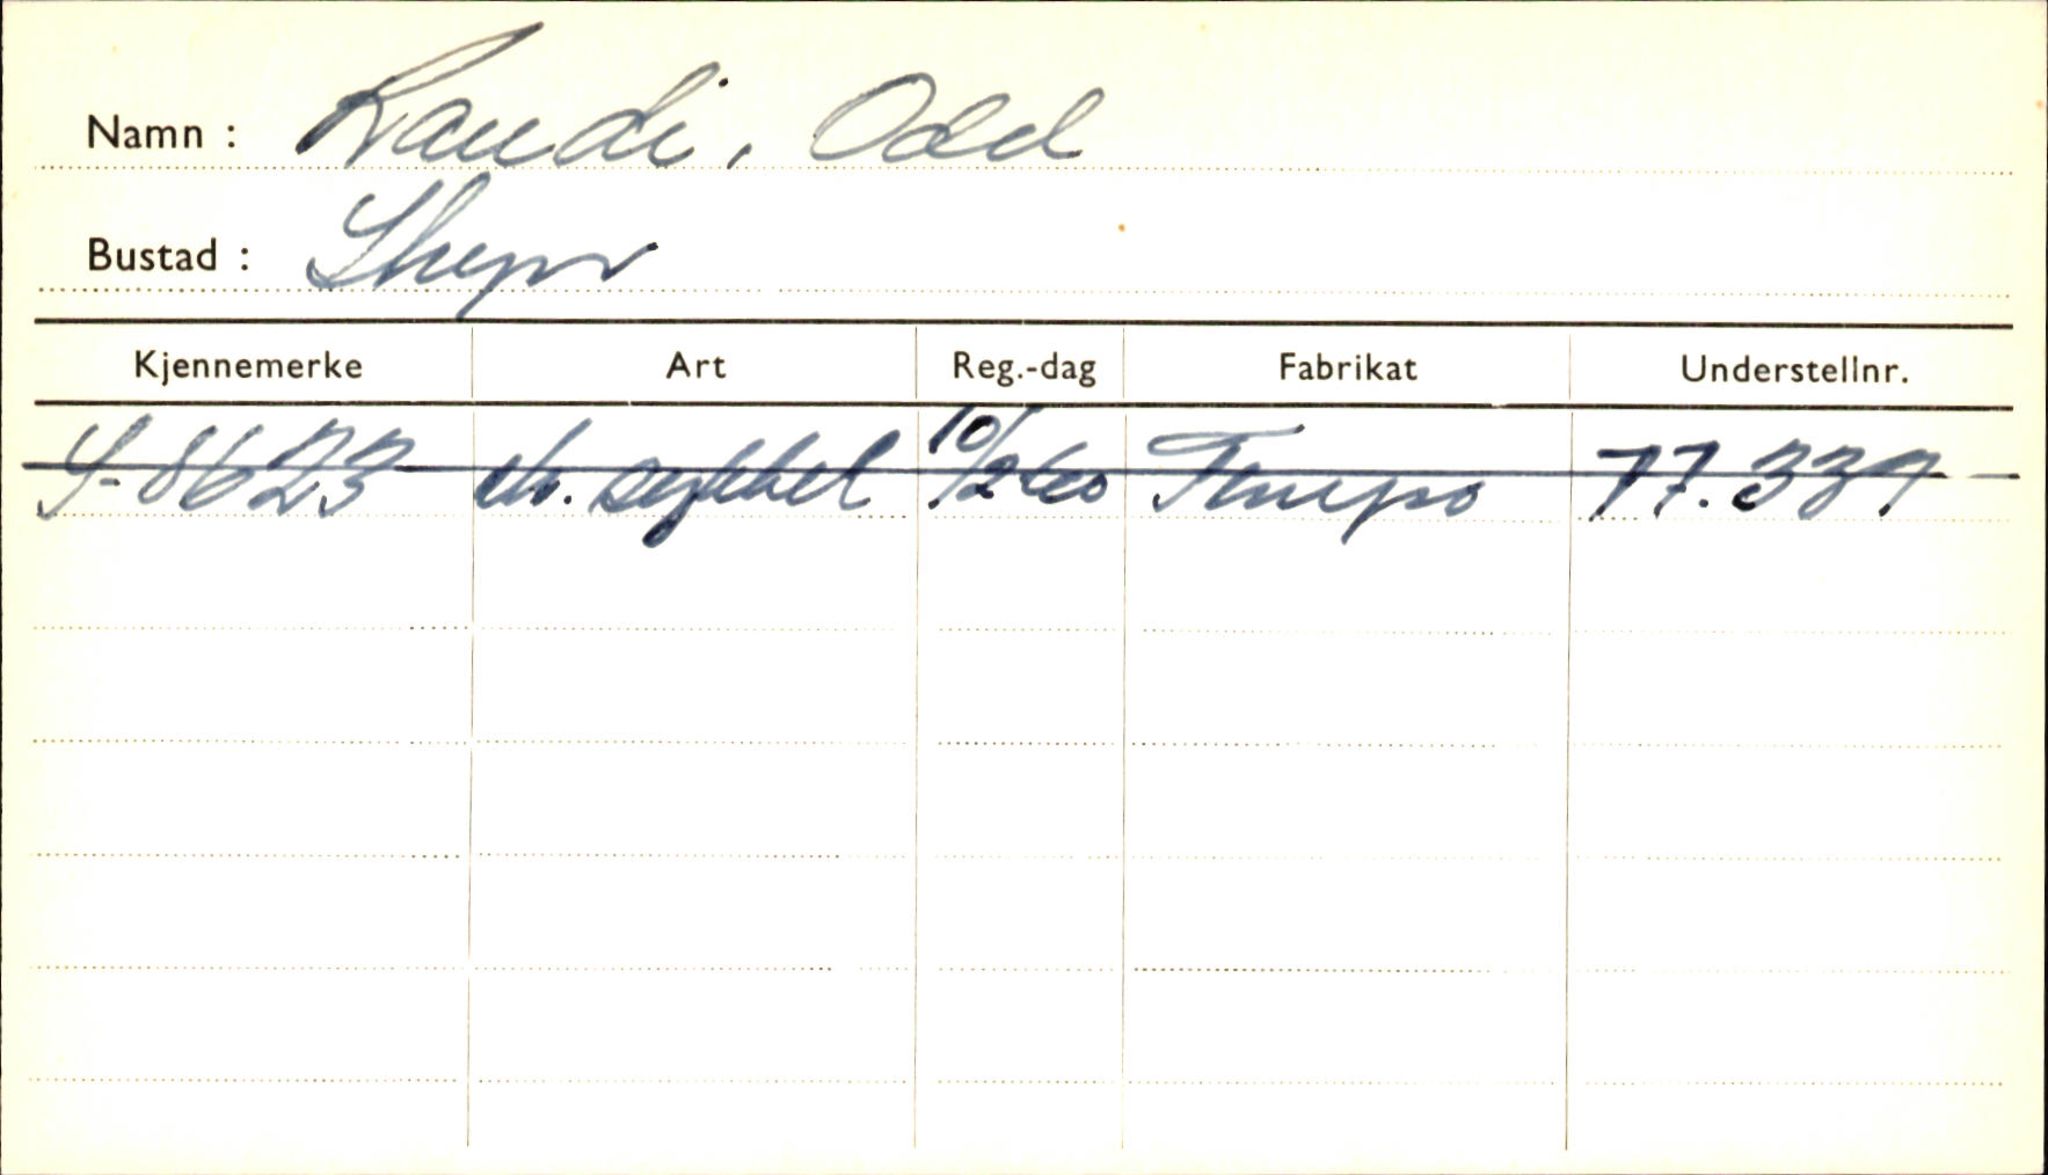 Namn : Raudi, Odd
Bustad : Skei
Kjennemerke Art Reg.-dag Fabrikat Understellnr.
S-8623 m. sykkel 10/2-60 Tempo 77.339